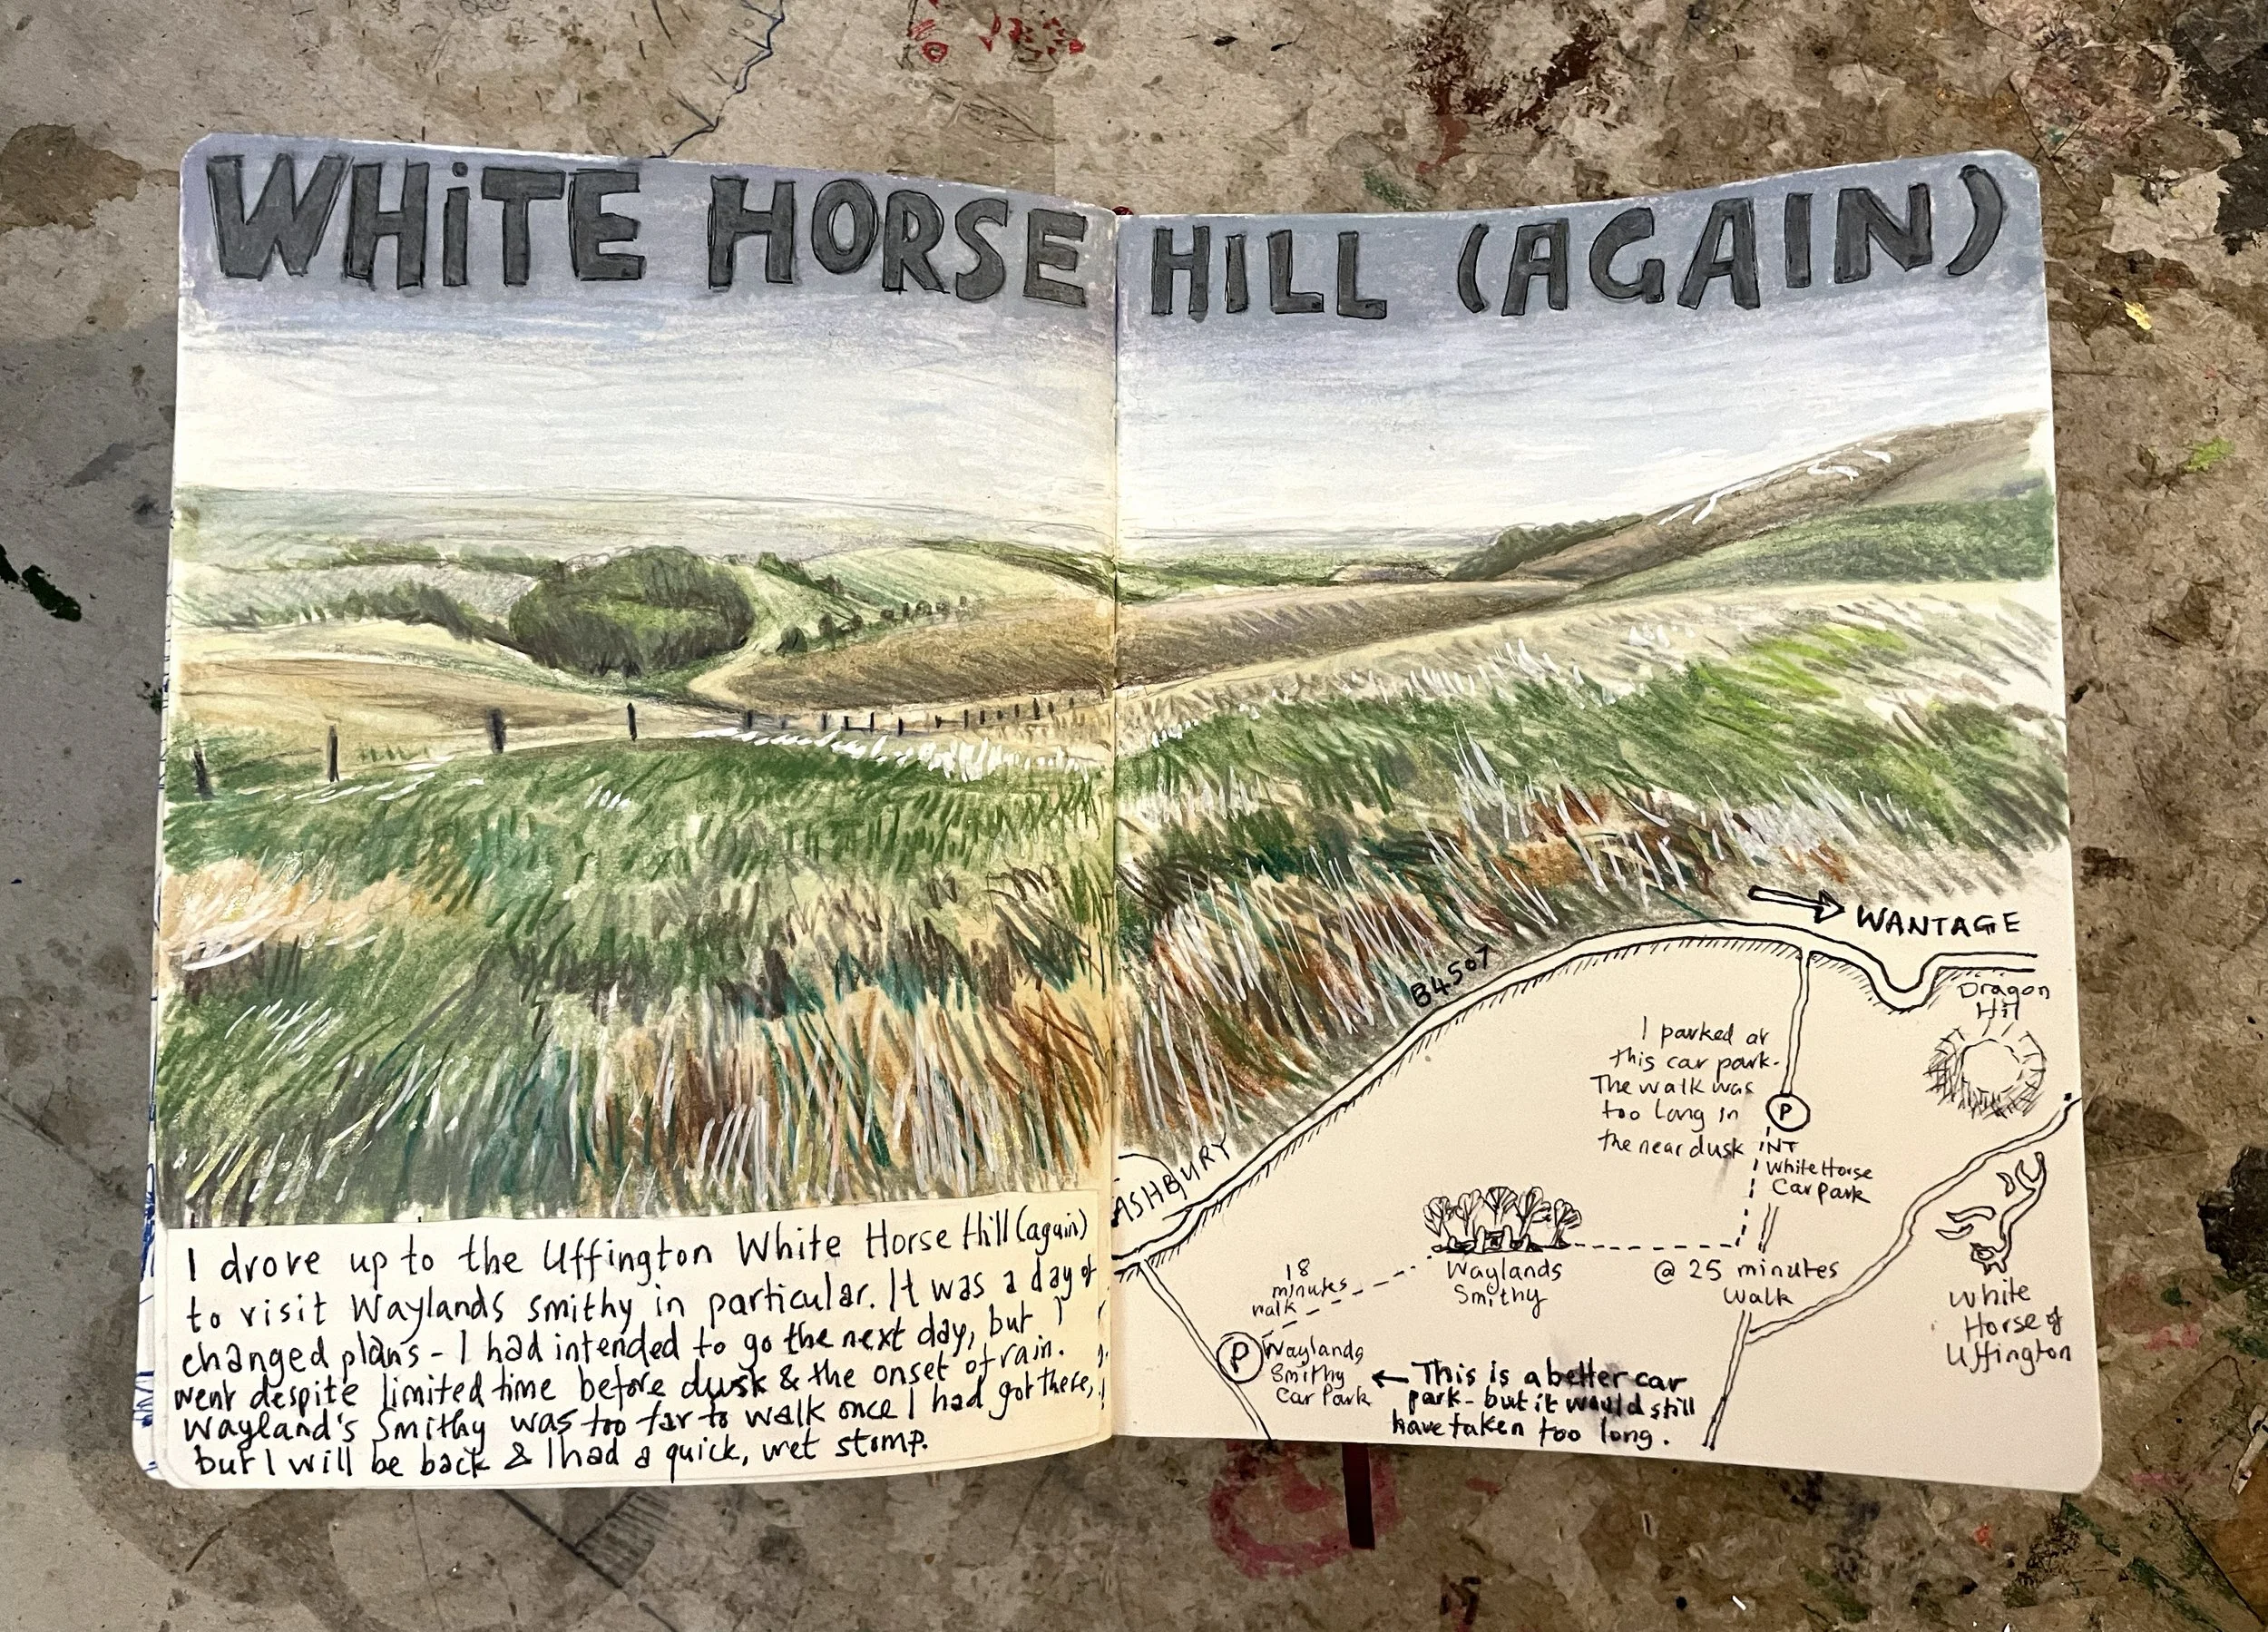 WHiTE HORSE HILL (AGAIN)
I drove up to the Uffington White Horse Hill (again)
to visit Waylands smithy in particular. It was a day of
changed plans - I had intended to go the next day, but I
went despite limited time before dusk & the onset of rain.
Wayland's Smithy was too far to walk once I had got there,
but I will be back & I had a quick, wet stomp.
WANTAGE
B4507
Dragon
Hill
I parked at
this car park.
The walk was
too long in
the near dusk
P
NT
White Horse
Car park
ASHBURY
18
minutes
walk
Waylands
Smithy
@ 25 minutes
Walk
White
Horse of
Uffington
P
Waylands
Smithy
Car Park
This is a better car
park - but it would still
have taken too long.